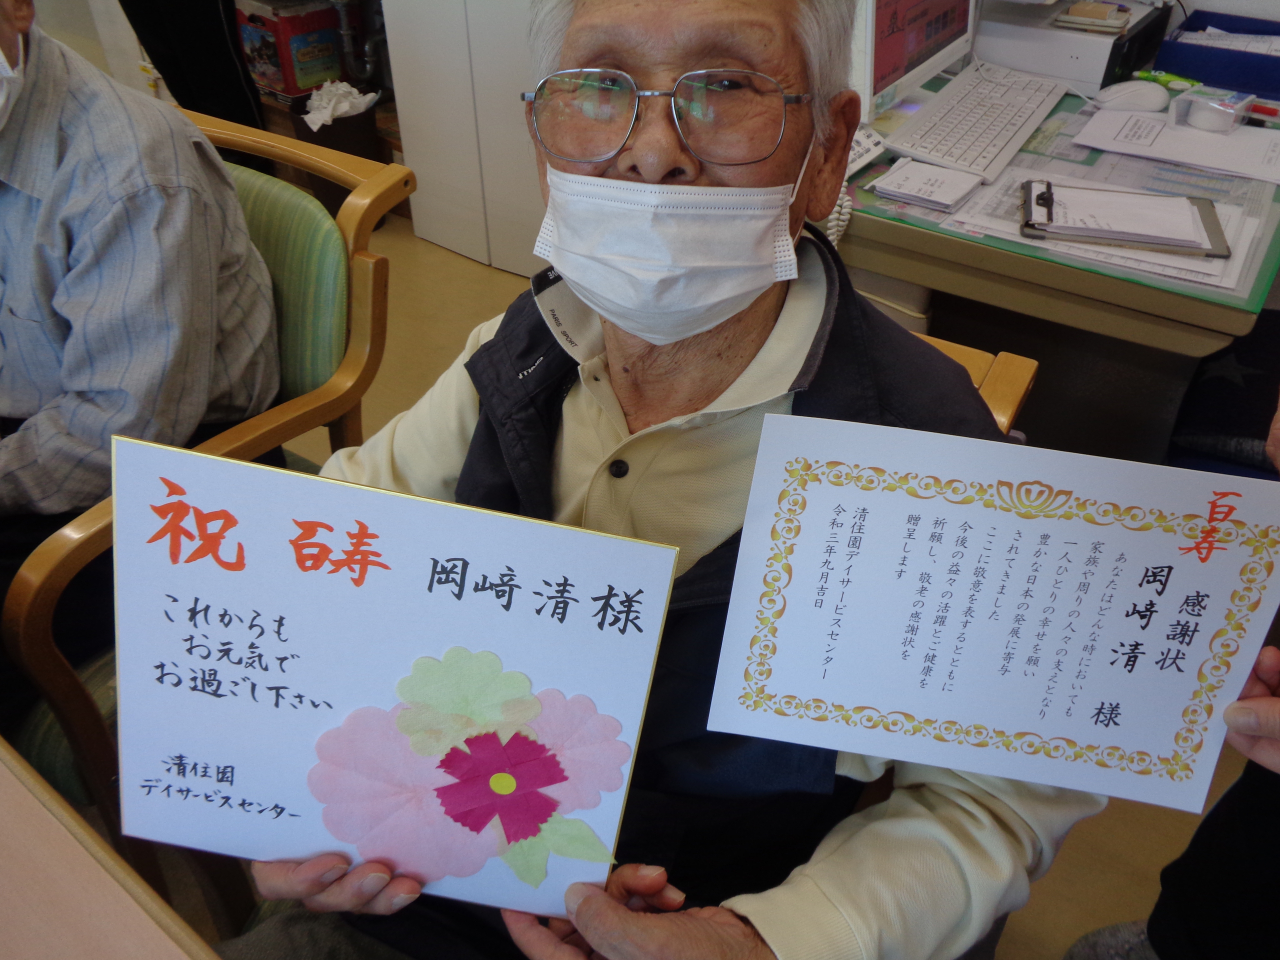 祝 百寿 岡﨑 清 様
これからも
お元気で
お過ごし下さい
清住園
デイサービスセンター
百寿
感謝状
岡﨑 清 様
あなたはどんな時においても
家族や周りの人々の支えとなり
一人ひとりの幸せを願い
豊かな日本の発展に寄与
されてきました
ここに敬意を表するとともに
今後の益々の活躍とご健康を
祈願し、敬老の感謝状を
贈呈します
清住園デイサービスセンター
令和三年九月吉日
PARIS SPORT